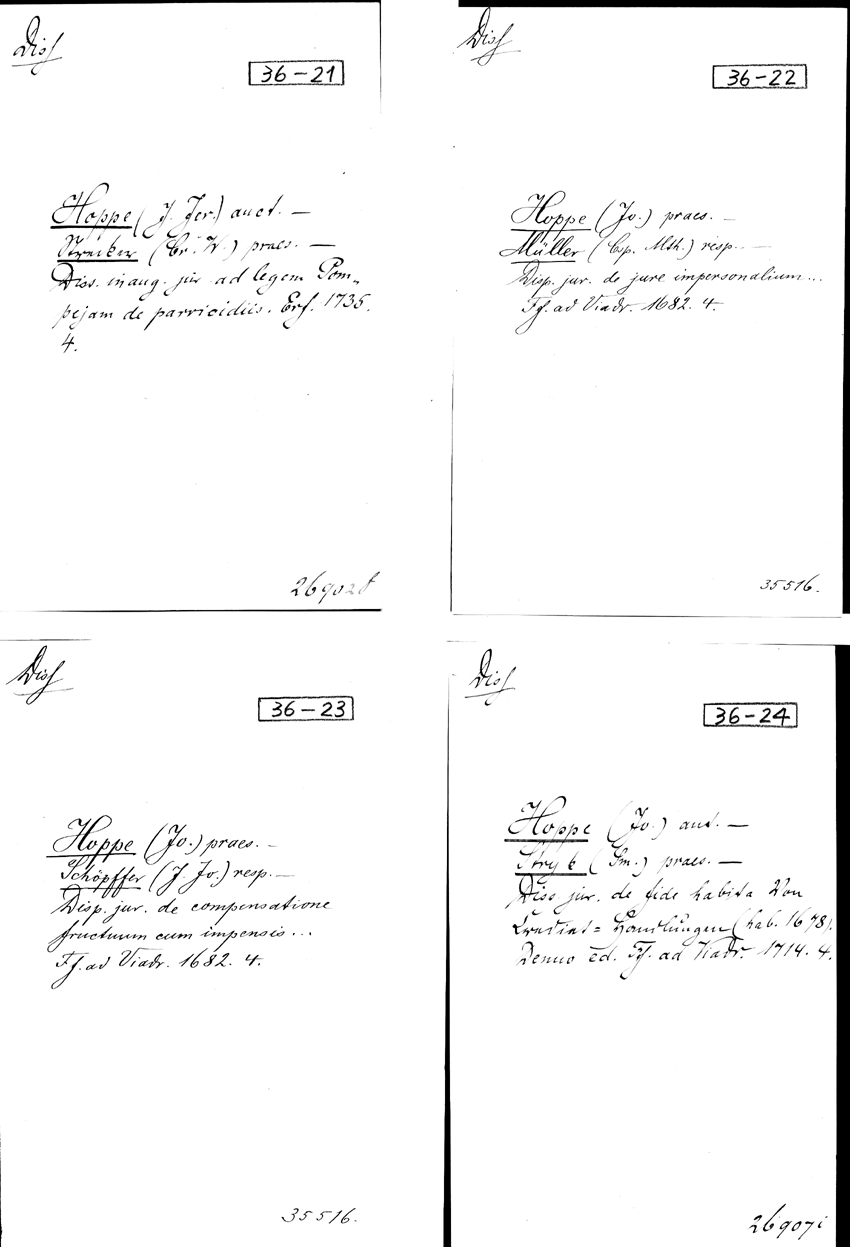 Diss
36-21
Hoppe (J. Jer.) auct. —
Strecker (Cr. W.) praes. —
Diss. inaug. jur. ad legem Pom-
pejam de parricidiis. Erf. 1735.
4.
26902
Diss
36-22
Hoppe (Jo.) praes. —
Müller (Csp. Mth.) resp. —
Disp. jur. de jure impersonalium...
Ff. ad Viadr. 1682. 4.
35516.
Diss
36-23
Hoppe (Jo.) praes. —
Schöpffer (J. Jo.) resp. —
Disp. jur. de compensatione
fructuum cum impensis...
Ff. ad Viadr. 1682. 4.
35516.
Diss
36-24
Hoppe (Jo.) auct. —
Stryk (Sm.) praes. —
Diss jur. de fide habita Von
Credint= Handlungen (hab. 1678).
Denuo ed. Ff. ad Viadr. 1714. 4.
26907i